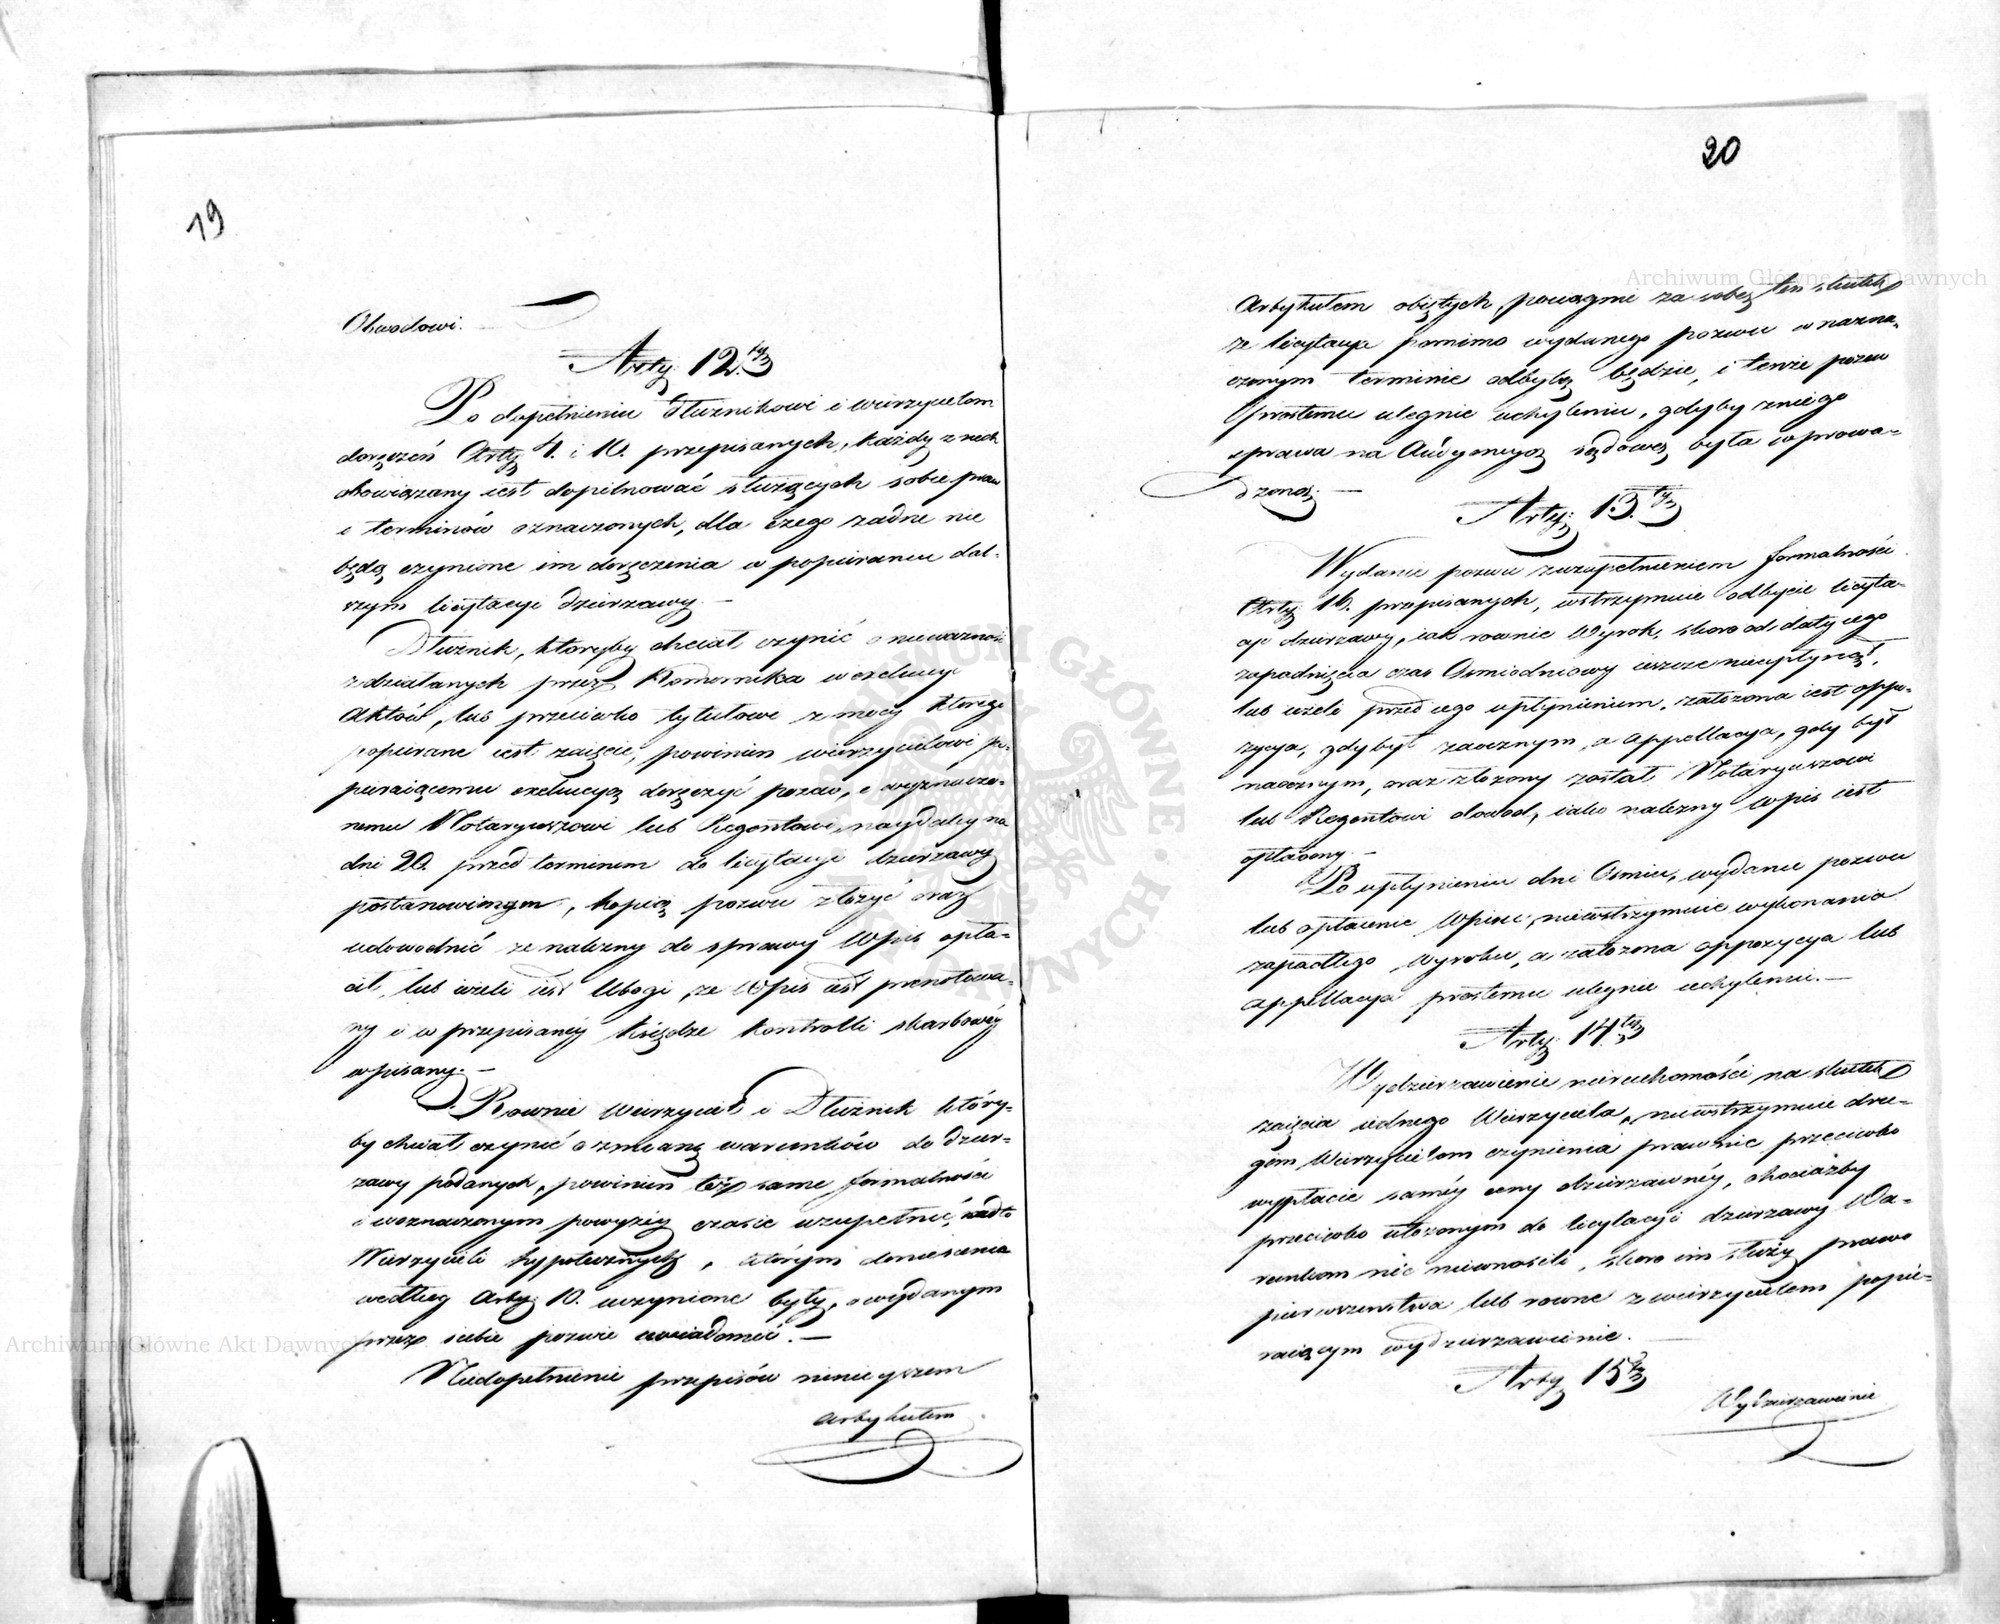 19
Obwodowi. —
Arty. 12.ty
Po dopełnieniu Dłużnikowi i wierzycielom
doręczeń Arty 4. i 10. przepisanych, każdy z nich
obowiązany iest dopilnować służących sobie praw
i terminów oznaczonych, dla czego żadne nie
będą czynione im doręczenia w popieraniu dal-
szym licytacyi dzierzawy. —
Dłużnik, któryby chciał czynić o nieważność
zdziałanych przez Komornika w exekucyi
Aktów, lub przeciwko tytułowi z mocy którego
popierane iest zaięcie, powinien wierzycielowi po-
pieraiącemu exekucyą doręczyć pozew, a wyznaczo-
nemu Notaryuszowi lub Regentowi, naydaley na
dni 20. przed terminem do licytacyi dzierzawy
postanowionym, kopią pozwu złożyć oraz
udowodnić że należny do sprawy Wpis opła-
cił, lub ieżeli iest Ubogi, że Wpis iest prenotowa-
ny i w przepisanéy księdze kontrolli skarbowéy
wpisany. —
Rownie Wierzyciel i Dłużnik który-
by chciał czynić o zmianę warunków do dzier-
żawy podanych, powinien też same formalności
i w oznaczonym powyżey czasie uzupełnić, nadto
Wierzycieli hypotecznych, którym doniesienia
według Arty. 10. uczynione były, o wydanym
przez siebie pozwie uwiadomić. —
Niedopełnienie przepisów ninieyszem
Artykułem
20
Artykułem obiętych, pociągnie za sobą ten skutek
że licytacya pomimo wydanego pozwu w nazna-
czonym terminie odbytą będzie, i tenże pozew
prostemu ulegnie uchyleniu, gdyby z niego
sprawa na Audyencyą sądową była wprowa-
dzoną. —
Arty. 13.ty
Wydanie pozwu z uzupełnieniem formalności
Arty 12. przepisanych, wstrzymuie odbycie licyta-
cyi dzierzawy, iak rownie Wyrok, skoro od daty iego
zapadnięcia czas Ośmiodniowy ieszcze nieupłynął,
lub ieżeli przed iego upłynieniem, założona iest oppo-
zycya, gdy był zaocznym, a appellacya, gdy był
naocznym, oraz złożony został Notaryuszowi
lub Regentowi dowod, iako należny wpis iest
opłacony. —
Po upłynieniu dni Ośmiu, wydanie pozwu
lub opłacenie Wpisu, niewstrzymuie wykonania
zapadłego Wyroku, a założona oppozycya lub
appellacya prostemu ulegnie uchyleniu. —
Arty. 14.ty
Wydzierzawienie nieruchomości na skutek
zaięcia iednego Wierzyciela, niewstrzymuie dru-
gim Wierzycielom czynienia prawnie przeciwko
wypłacie saméy ceny dzierzawnéy, chociażby
przeciwko ułożonym do licytacyi dzierzawy Wa-
runkom nic niewnosili, skoro im służy prawo
pierwszeństwa lub rowne z wierzycielem popie-
raiącym wydzierzawienie.
Arty 15.ty
Wydzierzawienie
Archiwum Główne Akt Dawnych
Archiwum Główne Akt Dawnych
ARCHIWUM GŁÓWNE AKT DAWNYCH